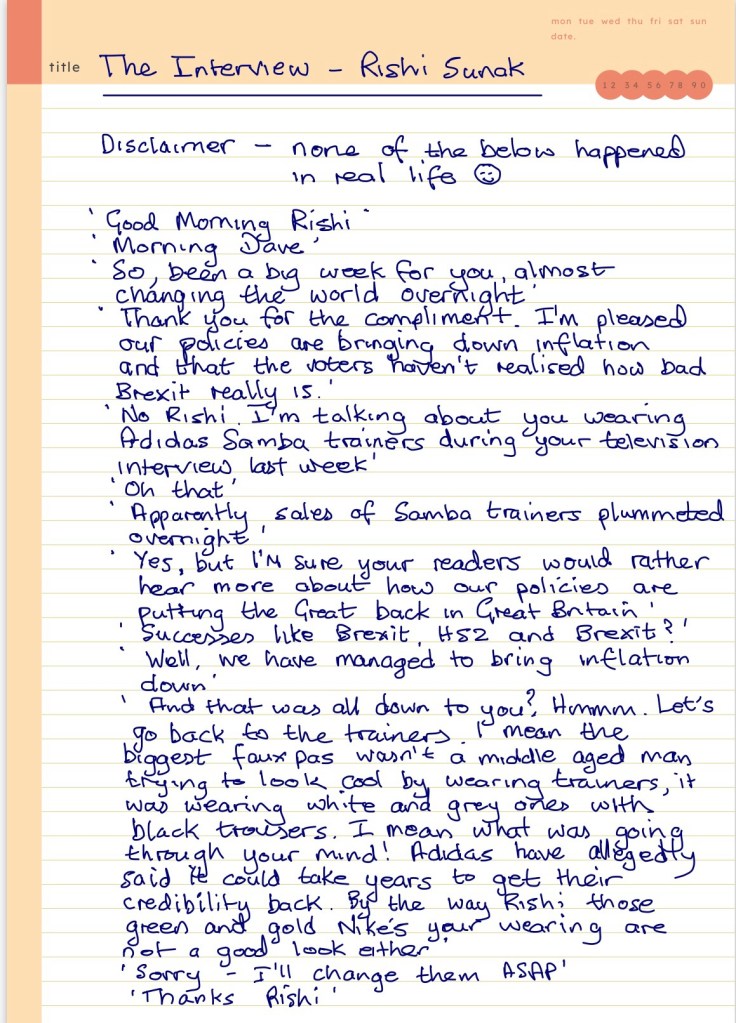 mon tue wed thu fri sat sun
date.
title The Interview - Rishi Sunak
1 2 3 4 5 6 7 8 9 0
Disclaimer - none of the below happened
in real life ☺
'Good Morning Rishi'
'Morning Dave'
'So, been a big week for you, almost
changing the world overnight'
'Thank you for the compliment. I'm pleased
our policies are bringing down inflation
and that the voters haven't realised how bad
Brexit really is.'
'No Rishi. I'm talking about you wearing
Adidas Samba trainers during your television
interview last week'
'Oh that'
'Apparently sales of Samba trainers plummeted
overnight'
'Yes, but I'm sure your readers would rather
hear more about how our policies are
putting the Great back in Great Britain'
'Successes like Brexit, HS2 and Brexit?'
'Well, we have managed to bring inflation
down'
'And that was all down to you? Hmmm. Let's
go back to the trainers. I mean the
biggest faux pas wasn't a middle aged man
trying to look cool by wearing trainers, it
was wearing white and grey ones with
black trousers. I mean what was going
through your mind! Adidas have allegedly
said it could take years to get their
credibility back. By the way Rishi those
green and gold Nike's your wearing are
not a good look either'
'Sorry - I'll change them ASAP'
'Thanks Rishi'